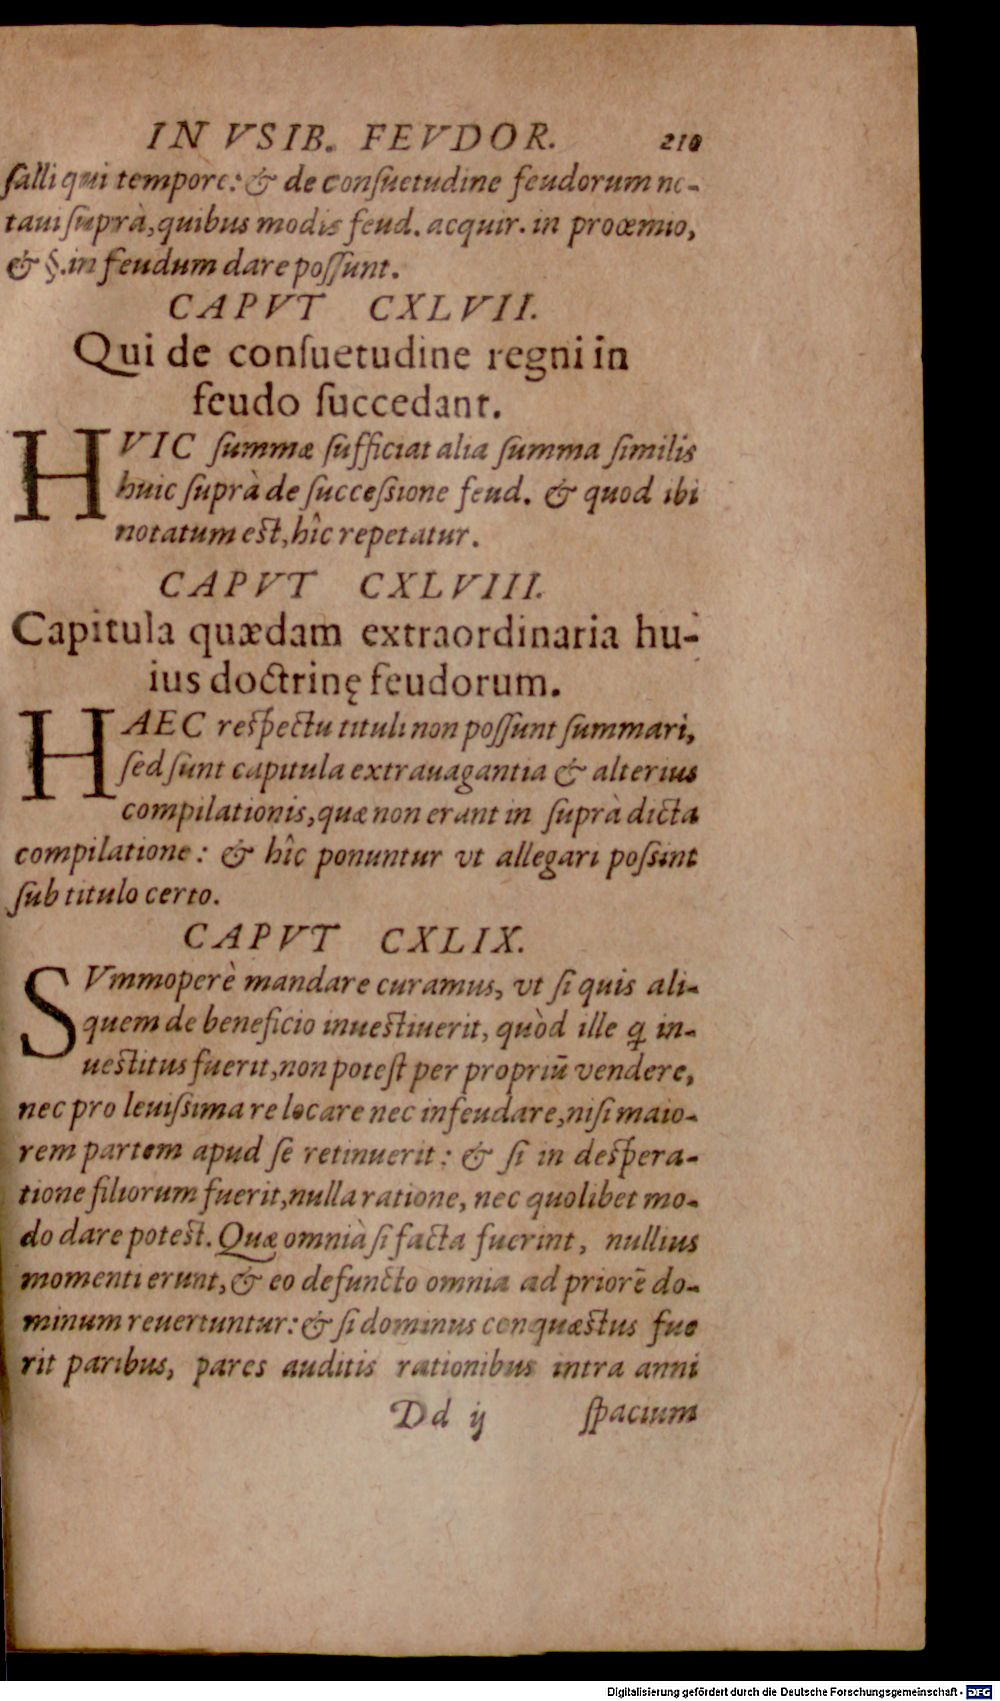 IN VSIB. FEVDOR. 210
ſalli qui tempore: & de conſuetudine feudorum no-
taui ſuprà, quibus modis feud. acquir. in proœmio,
& §. in feudum dare poſſunt.
CAPVT CXLVII.
Qui de conſuetudine regni in
feudo ſuccedant.
HVIC ſummæ ſufficiat alia ſumma ſimilis
huic ſuprà de ſucceſsione feud. & quod ibi
notatum eſt, hîc repetatur.
CAPVT CXLVIII.
Capitula quædam extraordinaria hu-
ius doctrinę feudorum.
HAEC reſpectu tituli non poſſunt ſummari,
ſed ſunt capitula extrauagantia & alterius
compilationis, quæ non erant in ſuprà dicta
compilatione: & hîc ponuntur vt allegari poſsint
ſub titulo certo.
CAPVT CXLIX.
SVmmoperè mandare curamus, vt ſi quis ali-
quem de beneficio inueſtiuerit, quòd ille ꝗ in-
ueſtitus fuerit, non poteſt per propriū vendere,
nec pro leuiſsima re locare nec infeudare, niſi maio-
rem partem apud ſe retinuerit: & ſi in deſpera-
tione filiorum fuerit, nulla ratione, nec quolibet mo-
do dare poteſt. Quæ omnià ſi facta fuerint, nullius
momenti erunt, & eo defuncto omnia ad priorē do-
minum reuertuntur: & ſi dominus conquæſtus fue
rit paribus, pares auditis rationibus intra anni
Dd ij ſpacium
Digitalisierung gefördert durch die Deutsche Forschungsgemeinschaft - DFG